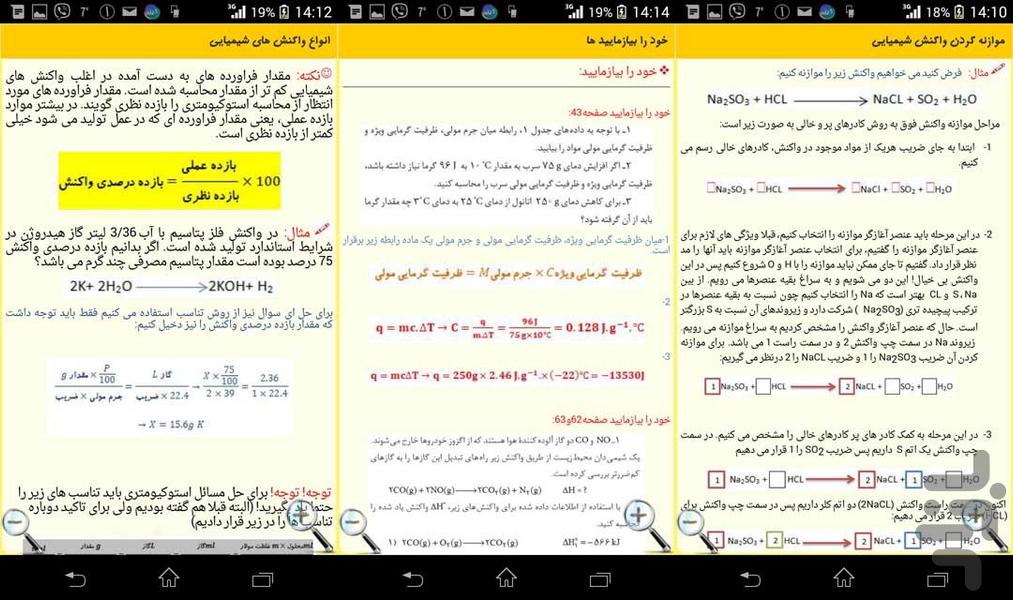 19% 14:12
انواع واکنش های شیمیایی
نکته: مقدار فراورده های به دست آمده در اغلب واکنش های
شیمیایی کم تر از مقدار محاسبه شده است. مقدار فراورده های مورد
انتظار از محاسبه استوکیومتری را بازده نظری گویند. در بیشتر موارد
بازده عملی، یعنی مقدار فراورده ای که در عمل تولید می شود خیلی
کمتر از بازده نظری است.
بازده درصدی واکنش = بازده عملی / بازده نظری × 100
مثال: در واکنش فلز پتاسیم با آب 3/36 لیتر گاز هیدروژن در
شرایط استاندارد تولید شده است. اگر بدانیم بازده درصدی واکنش
75 درصد بوده است مقدار پتاسیم مصرفی چند گرم می باشد؟
2K+ 2H₂O ⟶ 2KOH+ H₂
برای حل ای سوال نیز از روش تناسب استفاده می کنیم فقط باید توجه داشت
که مقدار بازده درصدی واکنش را نیز دخیل کنیم:
g مقدار × P/100 / جرم مولی × ضریب = L گاز / 22.4 × ضریب → X × 75/100 / 2 × 39 = 2.36 / 1 × 22.4
→ X = 15.6g K
توجه! توجه! برای حل مسائل استوکیومتری باید تناسب های زیر را
حتما یاد بگیرید! (البته قبلا هم گفته بودیم ولی برای تاکید دوباره
تناسب ها را در زیر قرار دادیم)
19% 14:14
خود را بیازمایید ها
❖ خود را بیازمایید:
خود را بیازمایید صفحه43:
۱ـ با توجه به داده‌های جدول ۱، رابطه میان جرم مولی، ظرفیت گرمایی ویژه و
ظرفیت گرمایی مولی مواد را بیابید.
۲ـ اگر افزایش دمای ۷۵ g سرب به مقدار ۱۰ °C به ۹۶ J گرما نیاز داشته باشد،
ظرفیت گرمایی ویژه و ظرفیت گرمایی مولی سرب را محاسبه کنید.
۳ـ برای کاهش دمای ۲۵۰ g اتانول از دمای ۲۵ °C به دمای ۳ °C چه مقدار گرما
باید از آن گرفته شود؟
1-میان ظرفیت گرمایی ویژه، ظرفیت گرمایی مولی و جرم مولی یک ماده رابطه زیر برقرار
است.
ظرفیت گرمایی ویژه C × جرم مولی M = ظرفیت گرمایی مولی
-2
q = mc.ΔT → C = q/m.ΔT = 96J/75g×10°C = 0.128 J.g⁻¹.°C
-3
q = mcΔT → q = 250g × 2.46 J.g⁻¹.×(−22)°C = −13530J
خود را بیازمایید صفحه62و63:
۱ـ NO و CO دو گاز آلوده کنندهٔ هوا هستند که از اگزوز خودروها خارج می‌شوند.
یک شیمی‌دان محیط‌زیست از طریق واکنش زیر راه‌های تبدیل این گازها را به گازهای
کم‌ضررتر بررسی کرده است.
۲CO(g) + ۲NO(g) ⟶ ۲CO₂(g) + N₂(g) ΔH = ?
با استفاده از اطلاعات داده شده برای واکنش‌های زیر، ΔH° واکنش یاد شده را
محاسبه کنید.
۱) ۲CO(g) + O₂(g) ⟶ ۲CO₂(g) ΔH₁° = −۵۶۶ kJ
18% 14:10
موازنه کردن واکنش شیمیایی
مثال: فرض کنید می خواهیم واکنش زیر را موازنه کنیم:
Na₂SO₃ + HCL ⟶ NaCL + SO₂ + H₂O
مراحل موازنه واکنش فوق به روش کادرهای پر و خالی به صورت زیر است:
1- ابتدا به جای ضریب هریک از مواد موجود در واکنش، کادرهای خالی رسم می
کنیم.
□Na₂SO₃ + □HCL ⟶ □NaCl + □SO₂ + □H₂O
2- در این مرحله باید عنصر آغازگر موازنه را انتخاب کنیم، قبلا ویژگی های لازم برای
عنصر آغازگر موازنه را گفتیم، برای انتخاب عنصر آغازگر موازنه باید آنها را مد
نظر قرار داد. گفتیم تا جای ممکن نباید موازنه را با H و O شروع کنیم پس در این
واکنش بی خیال! این دو می شویم و به سراغ بقیه عنصرها می رویم. از بین
S، Na و CL بهتر است که Na را انتخاب کنیم چون نسبت به بقیه عنصرها در
ترکیب پیچیده تری (Na₂SO₃) شرکت دارد و زیروندهای آن نسبت به S بزرگتر
است. حال که عنصر آغازگر واکنش را مشخص کردیم به سراغ موازنه می رویم.
زیروند Na در سمت چپ واکنش 2 و در سمت راست 1 می باشد. برای موازنه
کردن آن ضریب Na₂SO₃ را 1 و ضریب NaCL را 2 درنظر می گیریم:
1 Na₂SO₃ + □HCL ⟶ 2 NaCL + □SO₂ + □H₂O
3- در این مرحله به کمک کادر های پر کادرهای خالی را مشخص می کنیم. در سمت
چپ واکنش یک اتم S داریم پس ضریب SO₂ را 1 قرار می دهیم
1 Na₂SO₃ + □HCL ⟶ 2 NaCL + 1 SO₂ + □H₂O
واکنش (2NaCL) دو اتم کلر داریم پس در سمت چپ واکنش برای
2 قرار می دهیم:
1 Na₂SO₃ + 2 HCL ⟶ 2 NaCL + 1 SO₂ + □H₂O